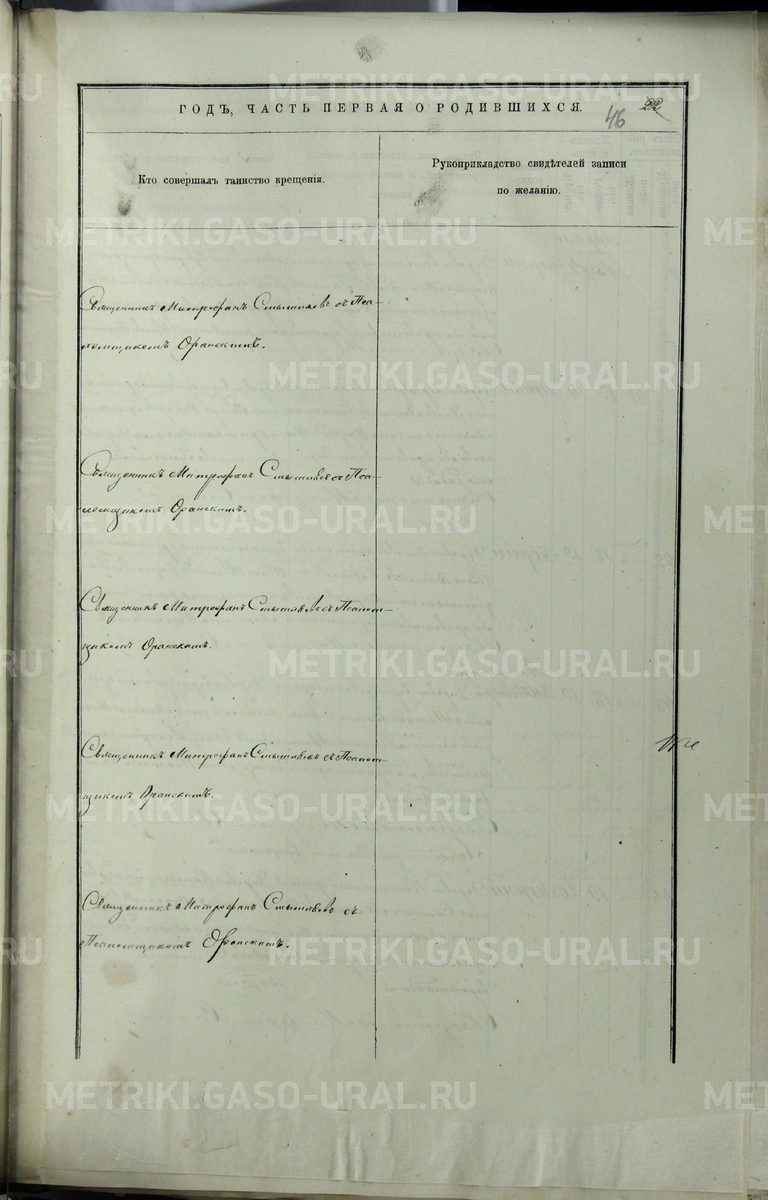 ГОДЪ, ЧАСТЬ ПЕРВАЯ О РОДИВШИХСЯ.
46 22
Кто совершалъ таинство крещенія.
Рукоприкладство свидѣтелей записи
по желанію.
Священникъ Митрофанъ Смышляевъ съ Пса-
ломщикомъ Оранскимъ.
Священникъ Митрофанъ съ Пса-
ломщикомъ Оранскимъ.
Священникъ Митрофанъ съ Псалом-
щикомъ Оранскимъ.
Священникъ Митрофанъ съ Псалом-
щикомъ Оранскимъ.
Священникъ Митрофанъ съ
Псаломщикомъ Оранскимъ.
METRIKI.GASO-URAL.RU